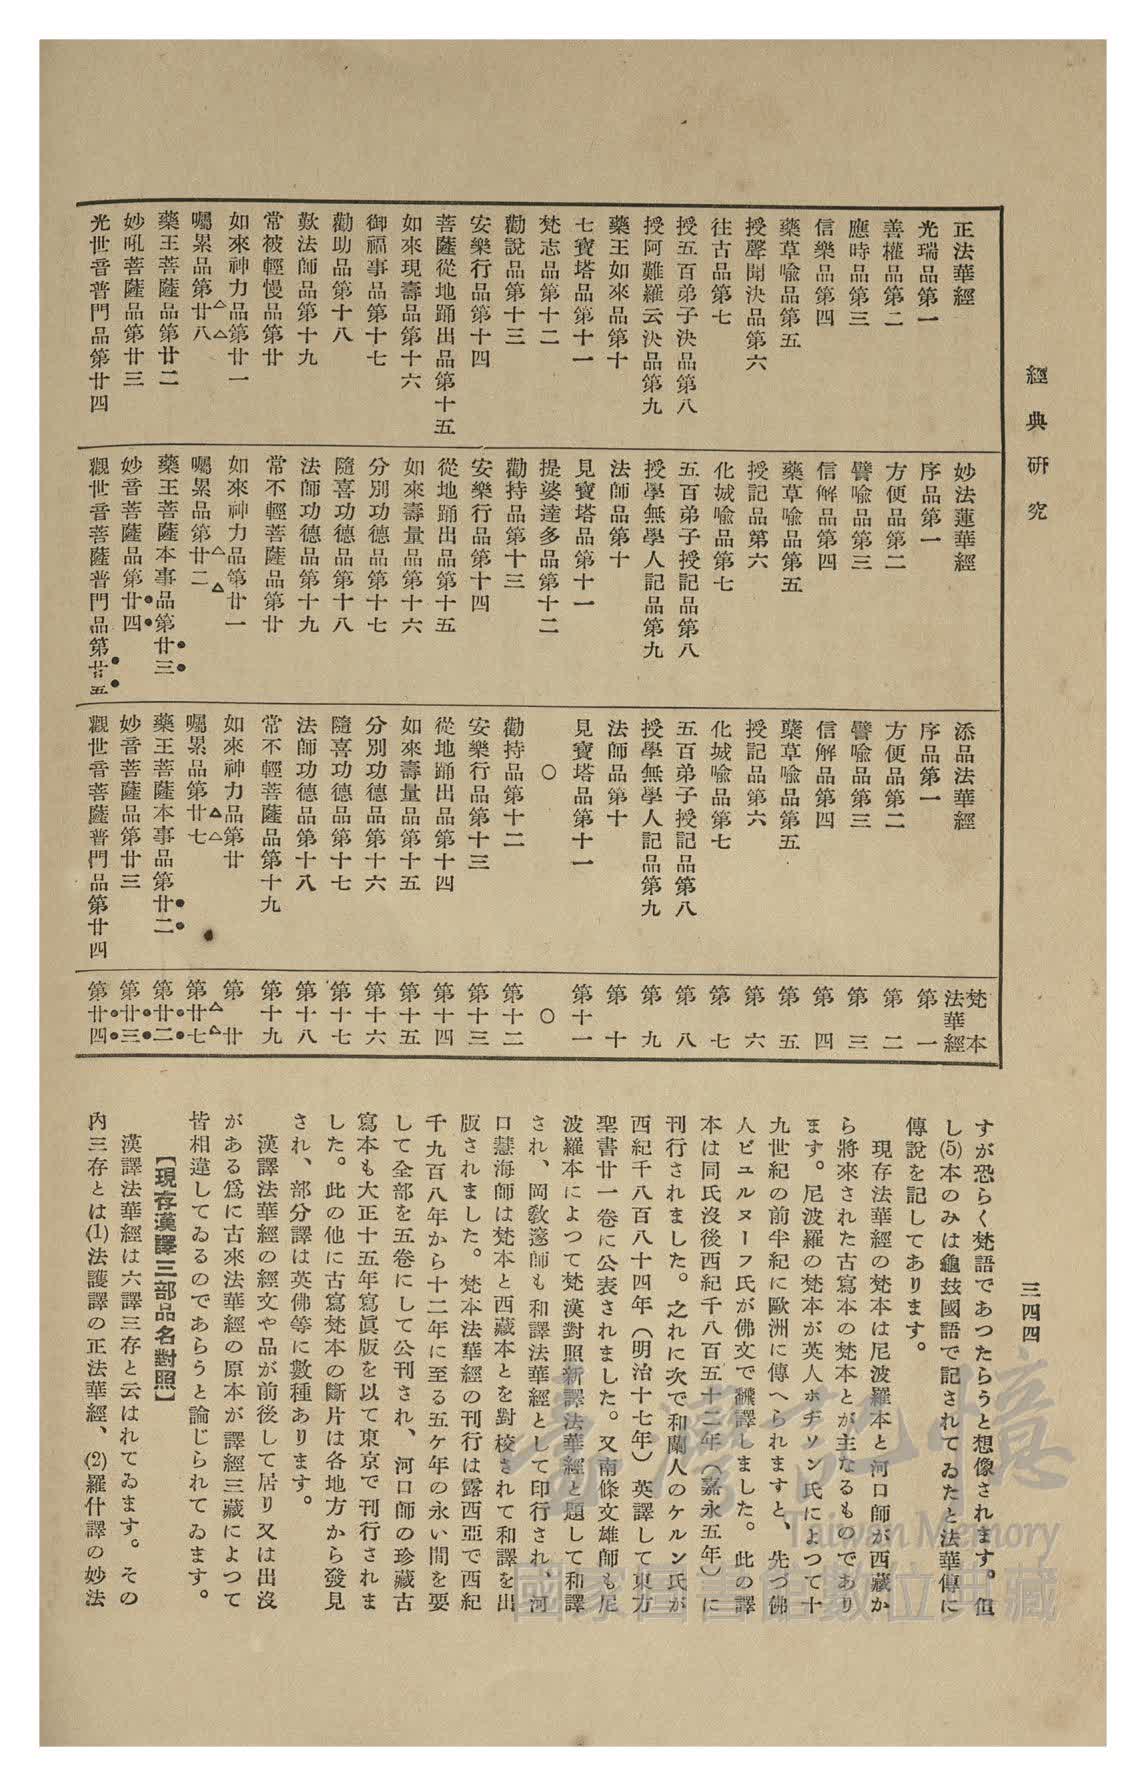 經典研究
三四四
正法華經
光瑞品第一
善權品第二
應時品第三
信樂品第四
藥草喩品第五
授聲聞決品第六
往古品第七
授五百弟子決品第八
授阿難羅云決品第九
藥王如來品第十
七寶塔品第十一
梵志品第十二
勸說品第十三
安樂行品第十四
菩薩從地踊出品第十五
如來現壽品第十六
御福事品第十七
勸助品第十八
歎法師品第十九
常被輕慢品第廿
如來神力品第廿一
囑累品第廿八
藥王菩薩品第廿二
妙吼菩薩品第廿三
光世音普門品第廿四
妙法蓮華經
序品第一
方便品第二
譬喩品第三
信解品第四
藥草喩品第五
授記品第六
化城喩品第七
五百弟子授記品第八
授學無學人記品第九
法師品第十
見寶塔品第十一
提婆達多品第十二
勸持品第十三
安樂行品第十四
從地踊出品第十五
如來壽量品第十六
分別功德品第十七
隨喜功德品第十八
法師功德品第十九
常不輕菩薩品第廿
如來神力品第廿一
囑累品第廿二
藥王菩薩本事品第廿三
妙音菩薩品第廿四
觀世音菩薩普門品第廿五
添品法華經
序品第一
方便品第二
譬喩品第三
信解品第四
藥草喩品第五
授記品第六
化城喩品第七
五百弟子授記品第八
授學無學人記品第九
法師品第十
見寶塔品第十一
○
勸持品第十二
安樂行品第十三
從地踊出品第十四
如來壽量品第十五
分別功德品第十六
隨喜功德品第十七
法師功德品第十八
常不輕菩薩品第十九
如來神力品第廿
囑累品第廿七
藥王菩薩本事品第廿二
妙音菩薩品第廿三
觀世音菩薩普門品第廿四
梵本
法華經
第一
第二
第三
第四
第五
第六
第七
第八
第九
第十
第十一
○
第十二
第十三
第十四
第十五
第十六
第十七
第十八
第十九
第廿
第廿七
第廿二
第廿三
第廿四
すが恐らく梵語であつたらうと想像されます。但
し(5)本のみは龜玆國語で記されてゐたと法華傳に
傳說を記してあります。
現存法華經の梵本は尼波羅本と河口師が西藏か
ら將來された古寫本の梵本とが主なるものであり
ます。尼波羅の梵本が英人ホヂソン氏によつて十
九世紀の前半紀に歐洲に傳へられますと、先づ佛
人ビユルヌーフ氏が佛文で飜譯しました。此の譯
本は同氏沒後西紀千八百五十二年（嘉永五年）に
刊行されました。之れに次で和蘭人のケルン氏が
西紀千八百八十四年（明治十七年）英譯して東方
聖書廿一卷に公表されました。又南條文雄師も尼
波羅本によつて梵漢對照新譯法華經と題して和譯
され、岡敎邃師も和譯法華經として印行され、河
口慧海師は梵本と西藏本とを對校されて和譯を出
版されました。梵本法華經の刊行は露西亞で西紀
千九百八年から十二年に至る五ケ年の永い間を要
して全部を五卷にして公刊され、河口師の珍藏古
寫本も大正十五年寫眞版を以て東京で刊行されま
した。此の他に古寫梵本の斷片は各地方から發見
され、部分譯は英佛等に數種あります。
漢譯法華經の經文や品が前後して居り又は出沒
がある爲に古來法華經の原本が譯經三藏によつて
皆相違してゐるのであらうと論じられてゐます。
【現存漢譯三部品名對照】
漢譯法華經は六譯三存と云はれてゐます。その
內三存とは(1)法護譯の正法華經、(2)羅什譯の妙法
臺灣記憶
Taiwan Memory
國家圖書館數位典藏